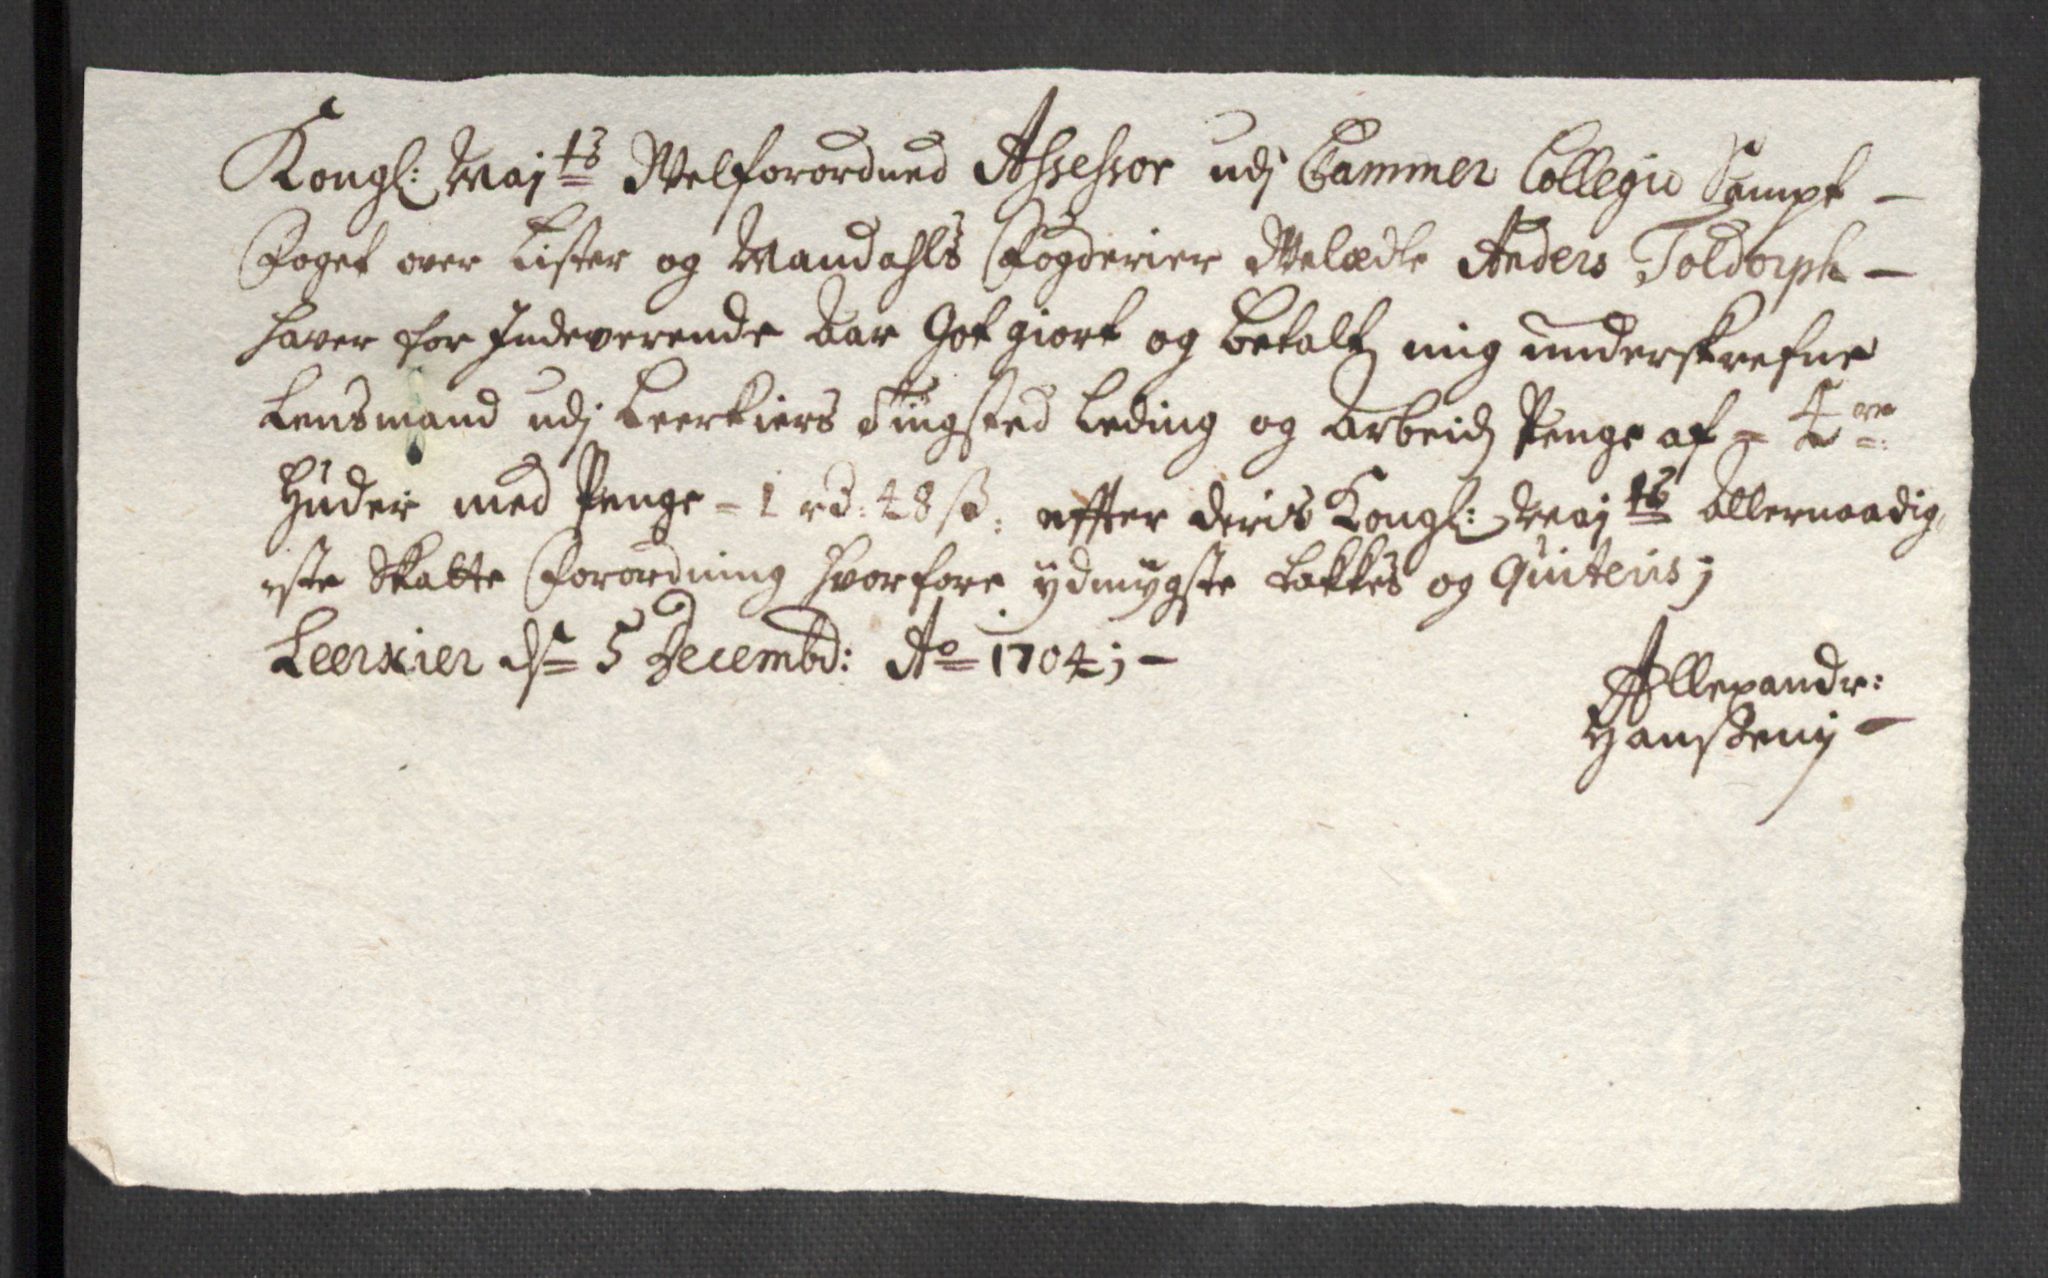 Kongl: Maj:ts Welforordned Assessor udj Cammer Collegio Sampt -
Foget over Lister og Mandahls Fogderier Welædle Anders Toldorph -
hafver for Indeverende Aar Got giort og betalt mig underskrefne
Lensmand udj Leerkiers Tingsted Leding og Arbeids Penge af - 4re
Huder med Penge - 1 rd: 48 s: effter deris Kongl: Maj:ts Allernaadig,
este Skatte Forordning hvorfore ydmygste takkes og Quiteris;
Leerkier ds 5 Decembd: Ao 1704; -
Allexandr:
Hansseny -